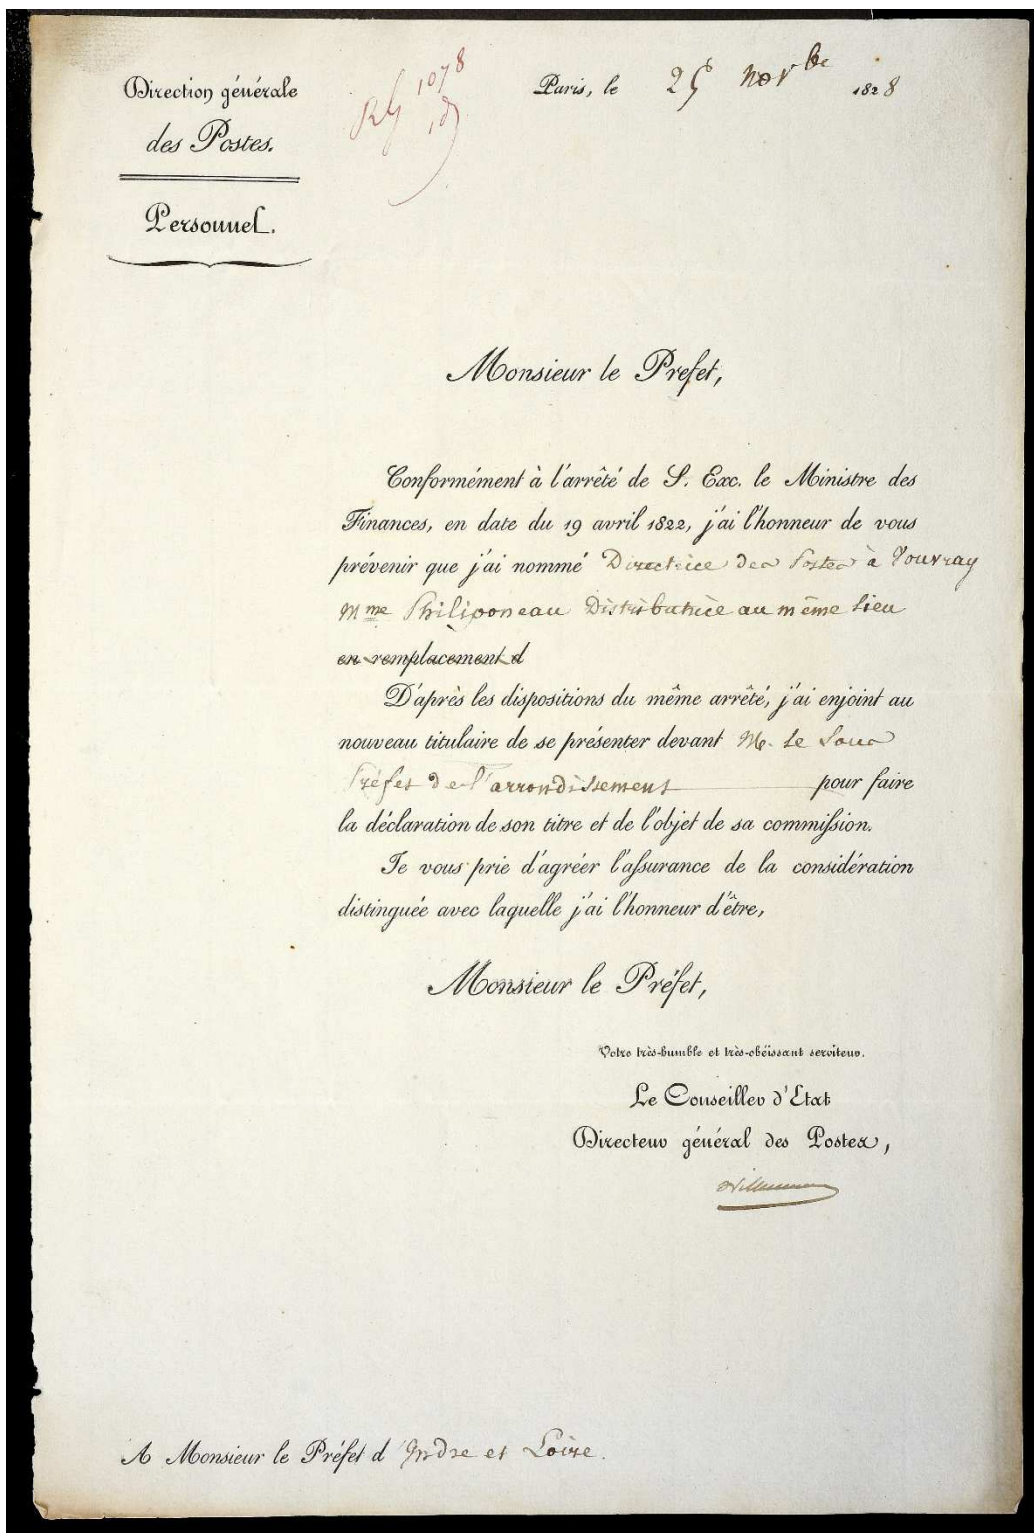 Direction générale
des Postes.
Personnel.
1078
Paris, le 25 novbre 1828
Monsieur le Prefet,
Conformément à l'arrêté de S. Exc. le Ministre des
Finances, en date du 19 avril 1822, j'ai l'honneur de vous
prévenir que j'ai nommé Directrice des Postes à Vouvray
Mme Philiponeau Distributrice au même lieu
en remplacement d
D'après les dispositions du même arrêté, j'ai enjoint au
nouveau titulaire de se présenter devant M. le Sous
Préfet de l'arrondissement pour faire
la déclaration de son titre et de l'objet de sa commission.
Je vous prie d'agréer l'assurance de la considération
distinguée avec laquelle j'ai l'honneur d'être,
Monsieur le Préfet,
Votre très-humble et très-obéissant serviteur.
Le Conseiller d'Etat
Directeur général des Postes,
A Monsieur le Préfet d'Indre et Loire.